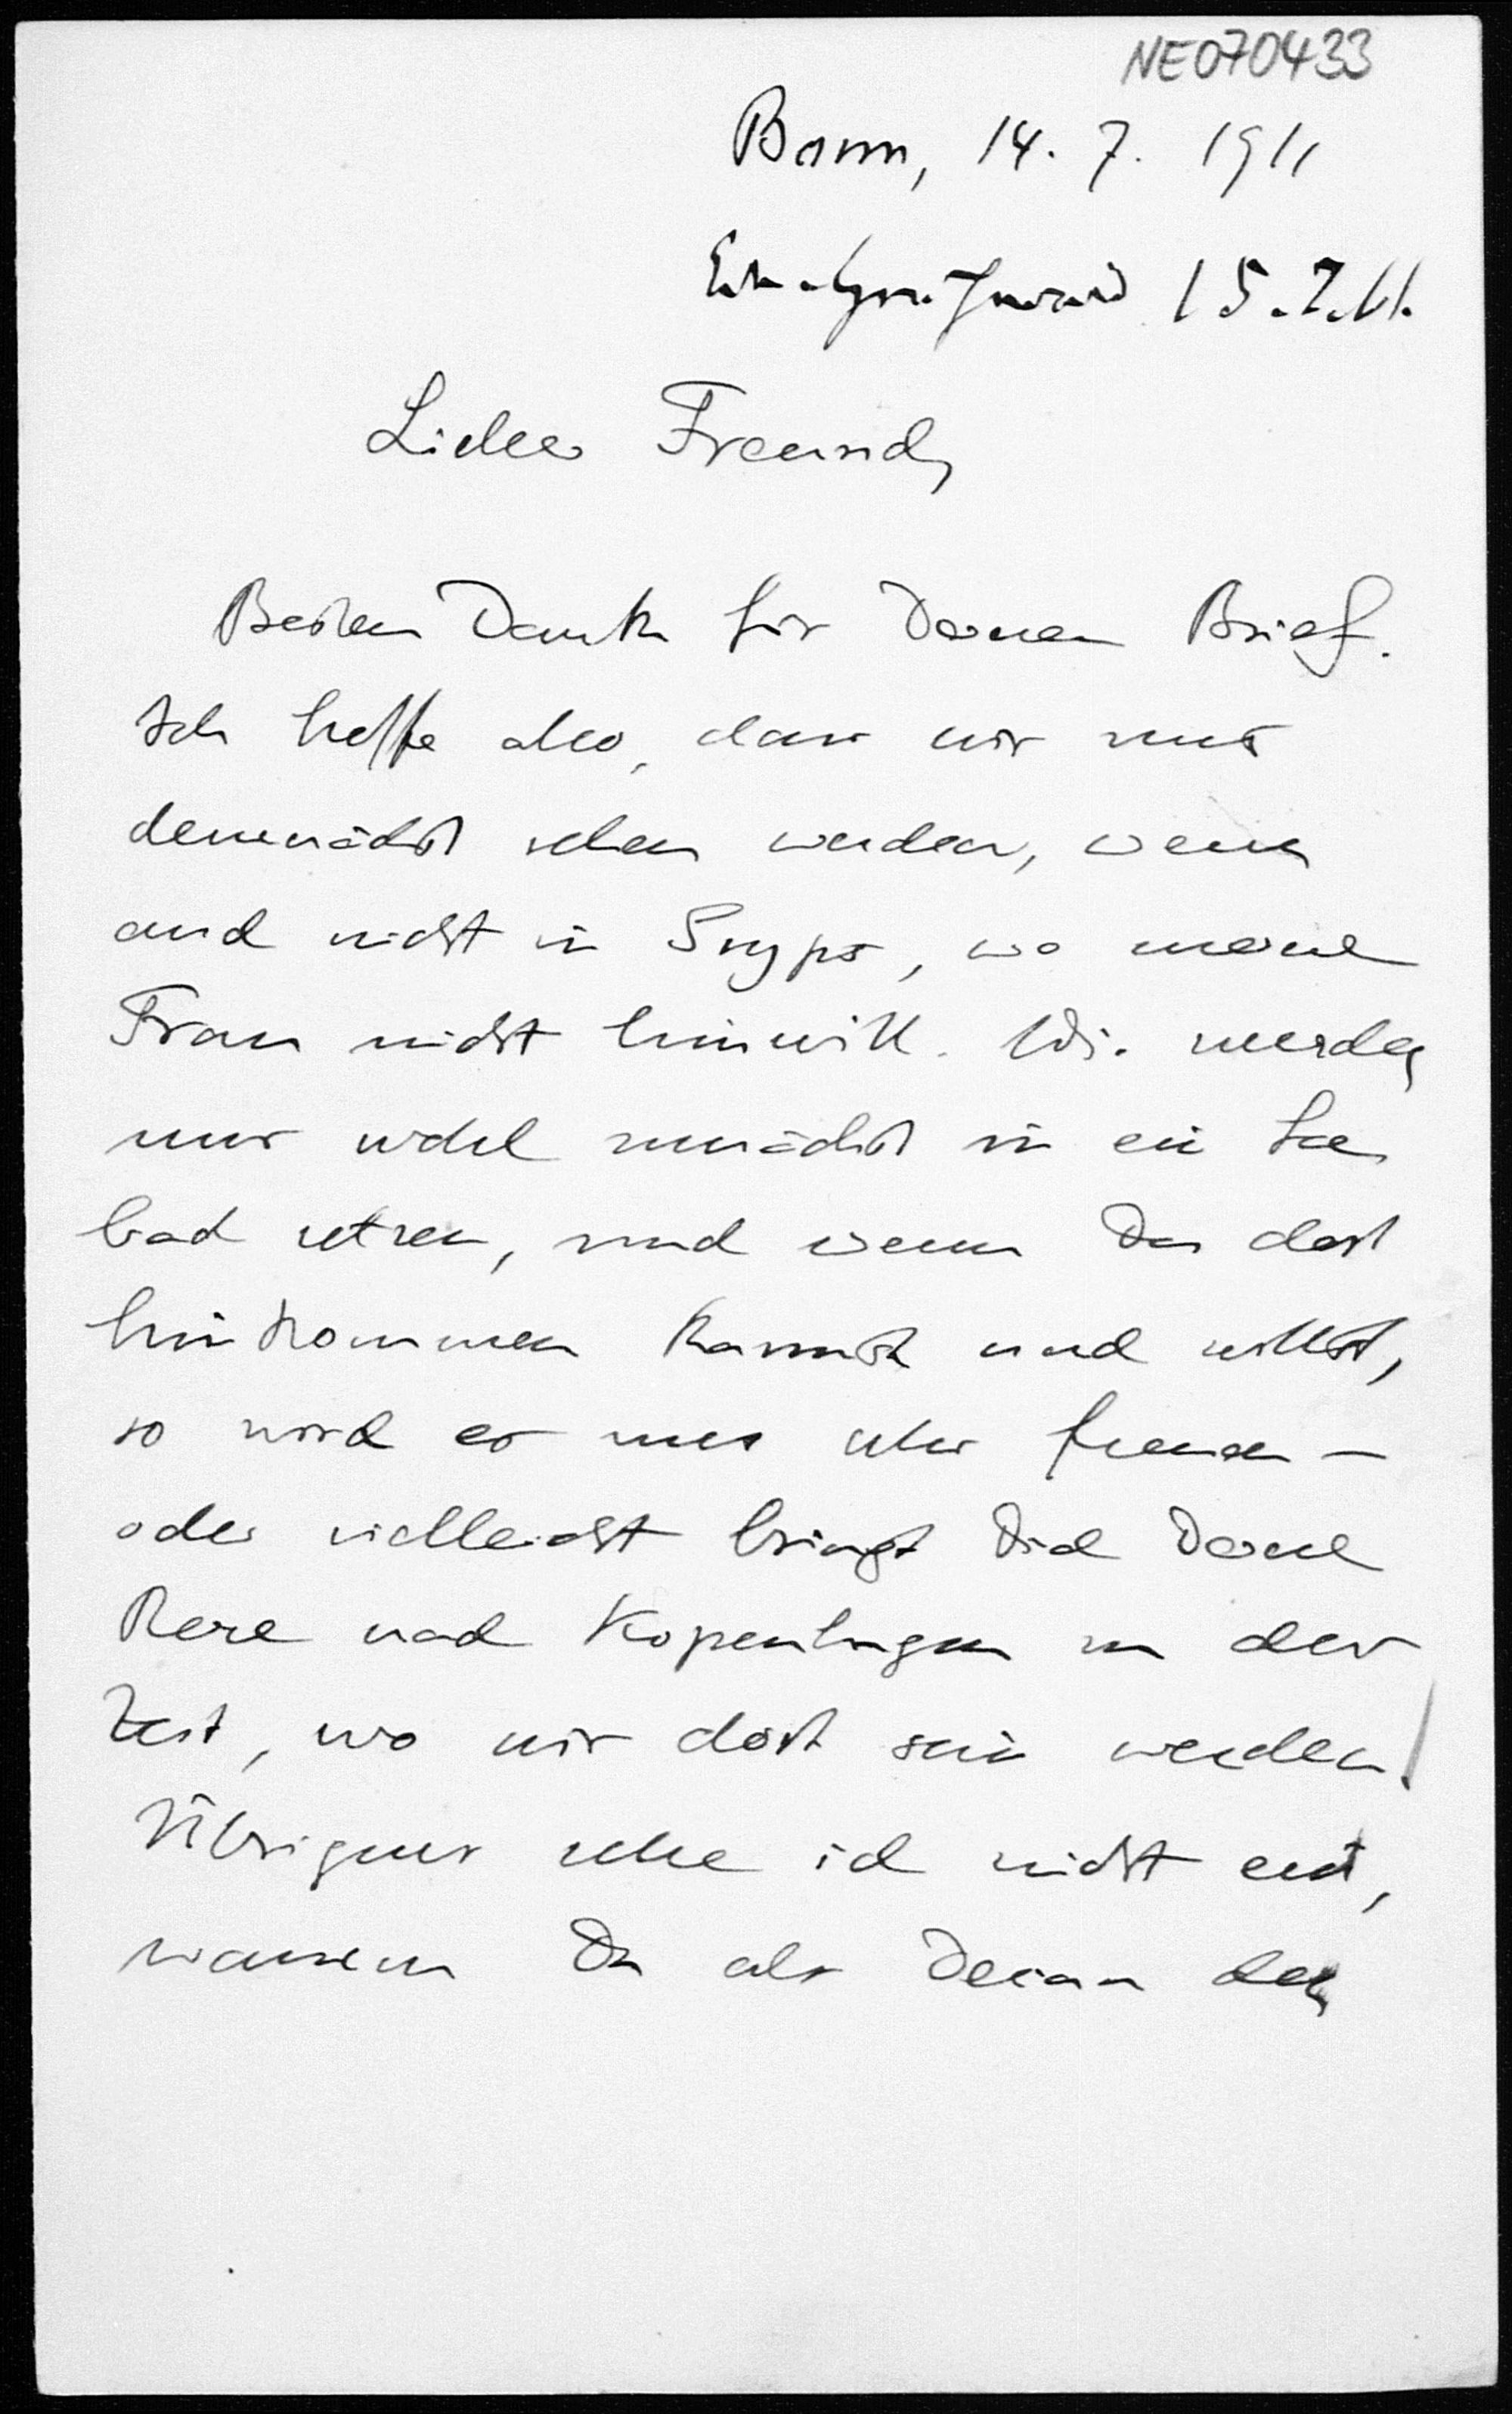 NE070433
Bonn, 14. 7. 1911
15.7.11.
Lieber Freund,
Besten Dank für Deinen Brief.
Ich hoffe also, dass wir uns
demnächst sehen werden, wenn
auch nicht in, wo meine
Frau nicht hinwill. Wir werden
uns wohl zunächst in ein See
bad setzen, und wenn Du dort
hinkommen kannst und willst,
so wird es uns sehr freuen –
oder vielleicht bringt Dich Deine
Reise nach Kopenhagen in der
Zeit, wo wir dort sein werden!
Übrigens sehe ich nicht ein,
warum Du als Decan den